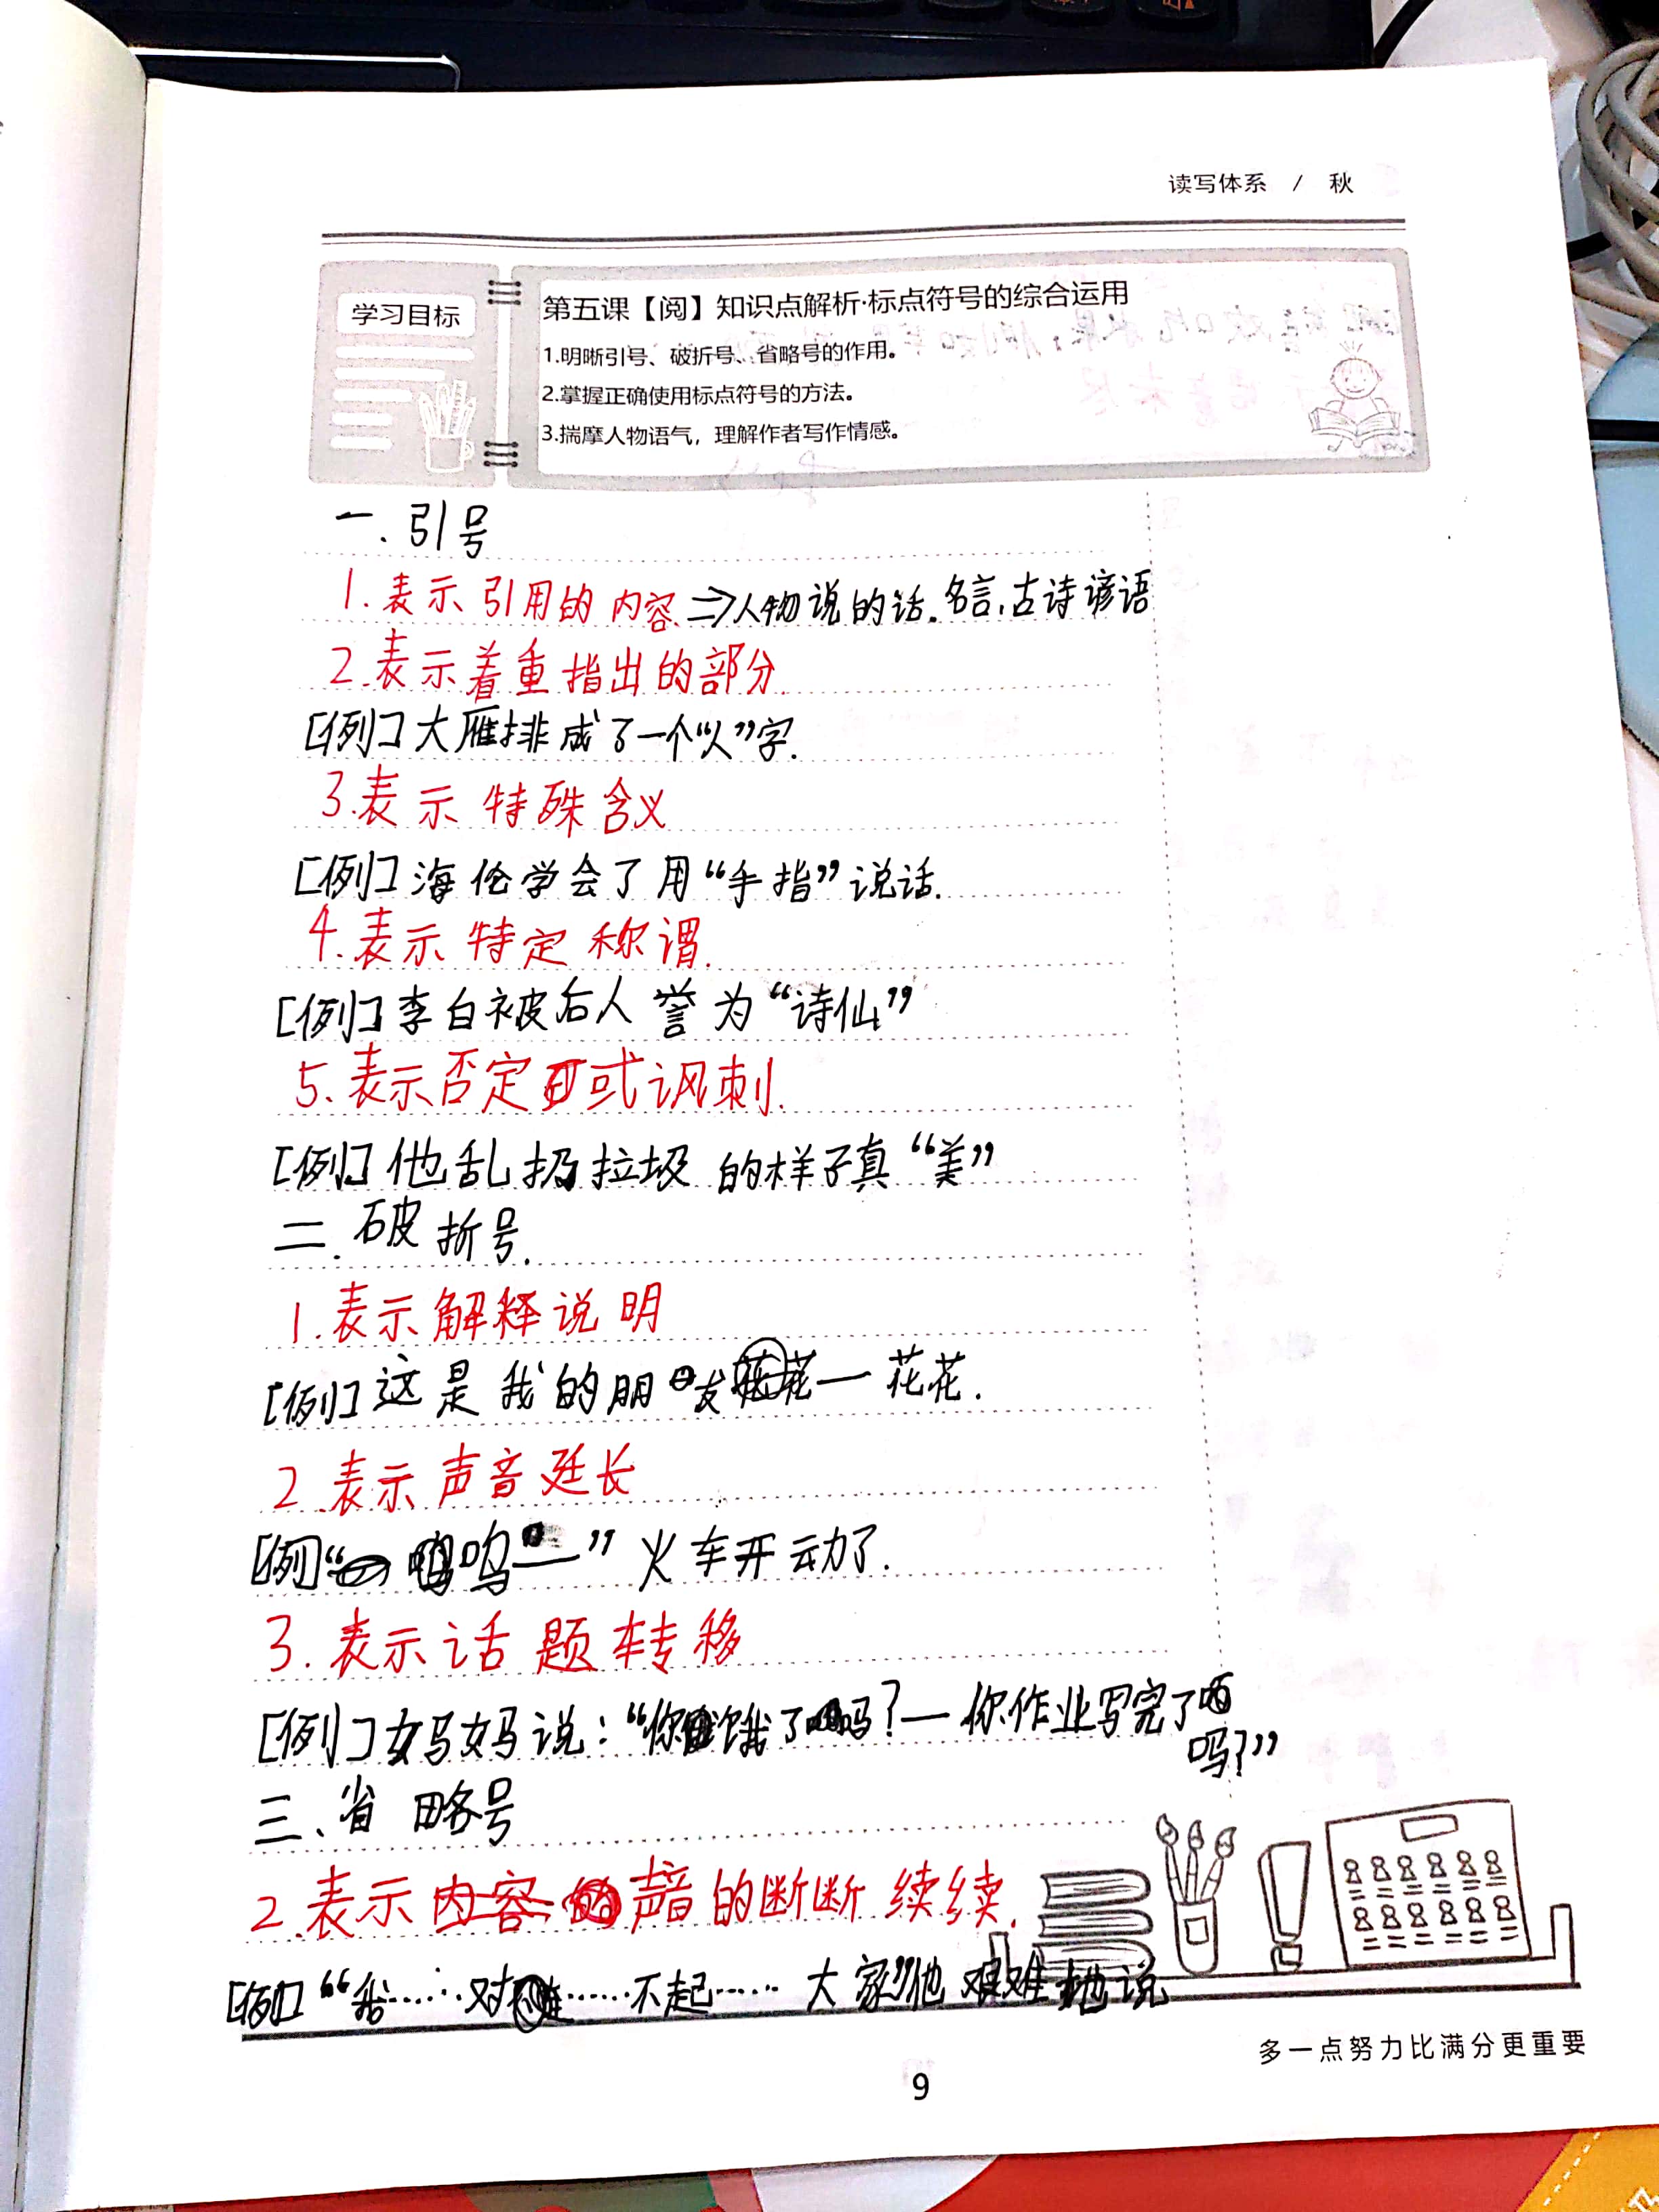 读写体系 / 秋
学习目标
第五课【阅】知识点解析·标点符号的综合运用
1.明晰引号、破折号、省略号的作用。
2.掌握正确使用标点符号的方法。
3.揣摩人物语气，理解作者写作情感。
一.引号
1.表示引用的内容⇒人物说的话.名言,古诗谚语
2.表示着重指出的部分.
[例]大雁排成了一个“人”字.
3.表示特殊含义
[例]海伦学会了用“手指”说话.
4.表示特定称谓.
[例]李白被后人誉为“诗仙”
5.表示否定或讽刺.
[例]他乱扔垃圾的样子真“美”
二.破折号.
1.表示解释说明
[例]这是我的朋友—花花.
2.表示声音延长
[例]“呜—”火车开动了.
3.表示话题转移
[例]妈妈说：“你饿了吗？—你作业写完了
吗？”
三、省略号
2.表示声音的断断续续.
[例]“我……对……不起……大家”他艰难地说
多一点努力比满分更重要
9